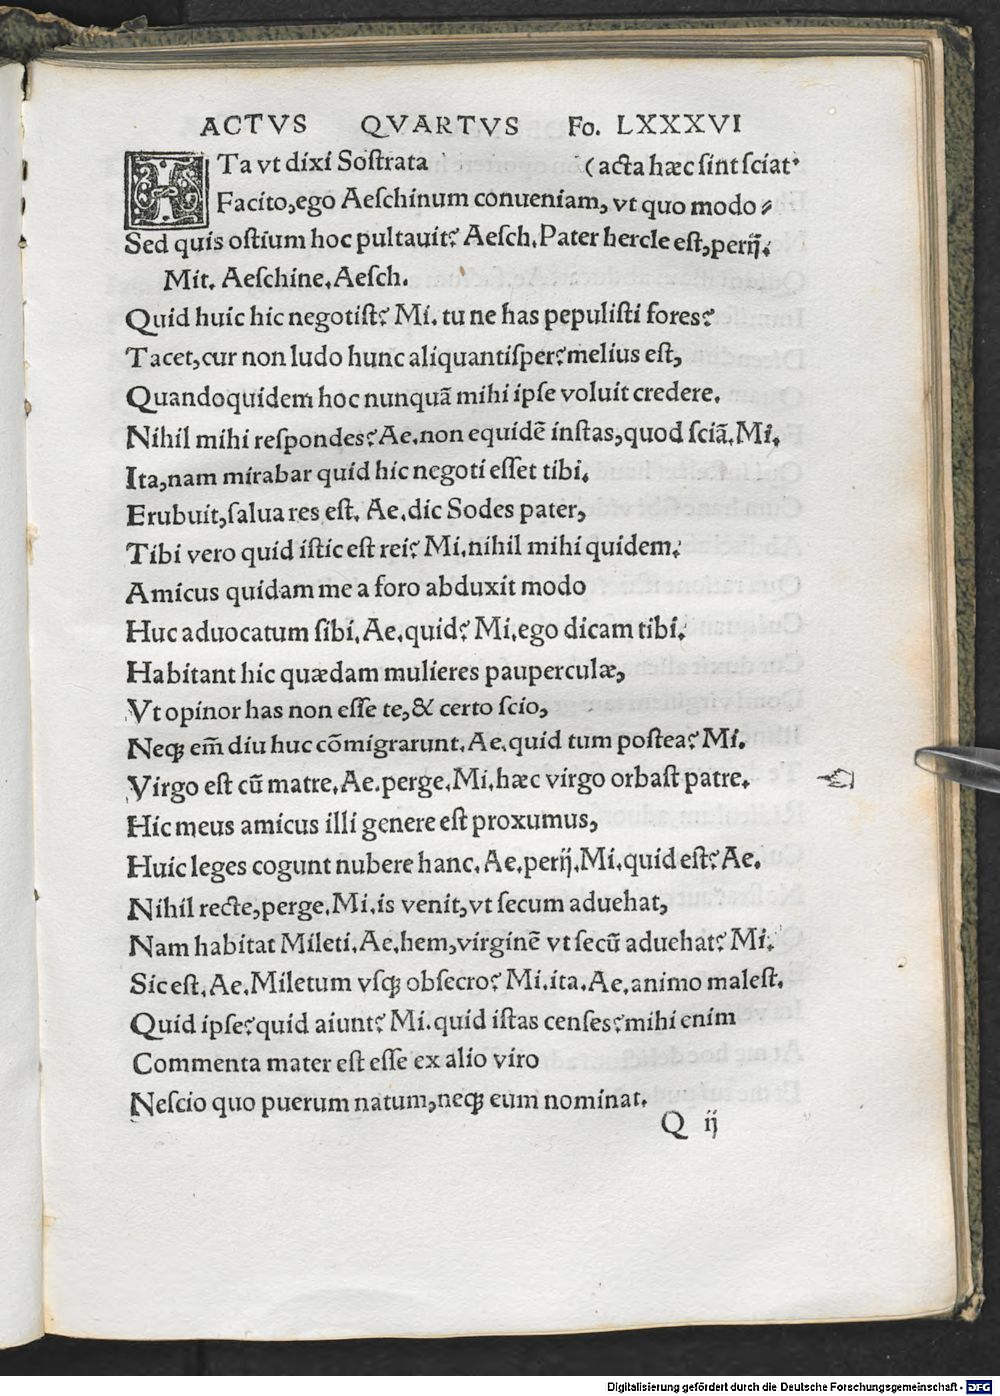 ACTVS QVARTVS Fo. LXXXVI
ITa vt dixi Soſtrata (acta hæc ſint ſciat.
Facito,ego Aeſchinum conueniam, vt quo modo⸗
Sed quis oſtium hoc pultauit? Aeſch.Pater hercle eſt,perij.
Mit. Aeſchine.Aeſch.
Quid huic hic negotiſt? Mi. tu ne has pepuliſti fores?
Tacet,cur non ludo hunc aliquantiſper?melius eſt,
Quandoquidem hoc nunquā mihi ipſe voluit credere.
Nihil mihi reſpondes?Ae.non equidē inſtas,quod ſciā.Mi.
Ita,nam mirabar quid hic negoti eſſet tibi.
Erubuit,ſalua res eſt. Ae.dic Sodes pater,
Tibi vero quid iſtic eſt rei? Mi.nihil mihi quidem.
Amicus quidam me a foro abduxit modo
Huc aduocatum ſibi. Ae.quid? Mi.ego dicam tibi.
Habitant hic quædam mulieres pauperculæ,
Vt opinor has non eſſe te,& certo ſcio,
Neqꝫ em̄ diu huc cōmigrarunt.Ae.quid tum poſtea? Mi.
Virgo eſt cū matre.Ae.perge.Mi.hæc virgo orbaſt patre.
Hic meus amicus illi genere eſt proxumus,
Huic leges cogunt nubere hanc.Ae.perij.Mi.quid eſt? Ae.
Nihil recte,perge.Mi.is venit,vt ſecum aduehat,
Nam habitat Mileti.Ae.hem,virginē vt ſecū aduehat? Mi.
Sic eſt.Ae.Miletum vſqꝫ obſecro? Mi.ita.Ae.animo maleſt.
Quid ipſe?quid aiunt? Mi.quid iſtas cenſes?mihi enim
Commenta mater eſt eſſe ex alio viro
Neſcio quo puerum natum,neqꝫ eum nominat.
Q ij
Digitalisierung gefördert durch die Deutsche Forschungsgemeinschaft - DFG